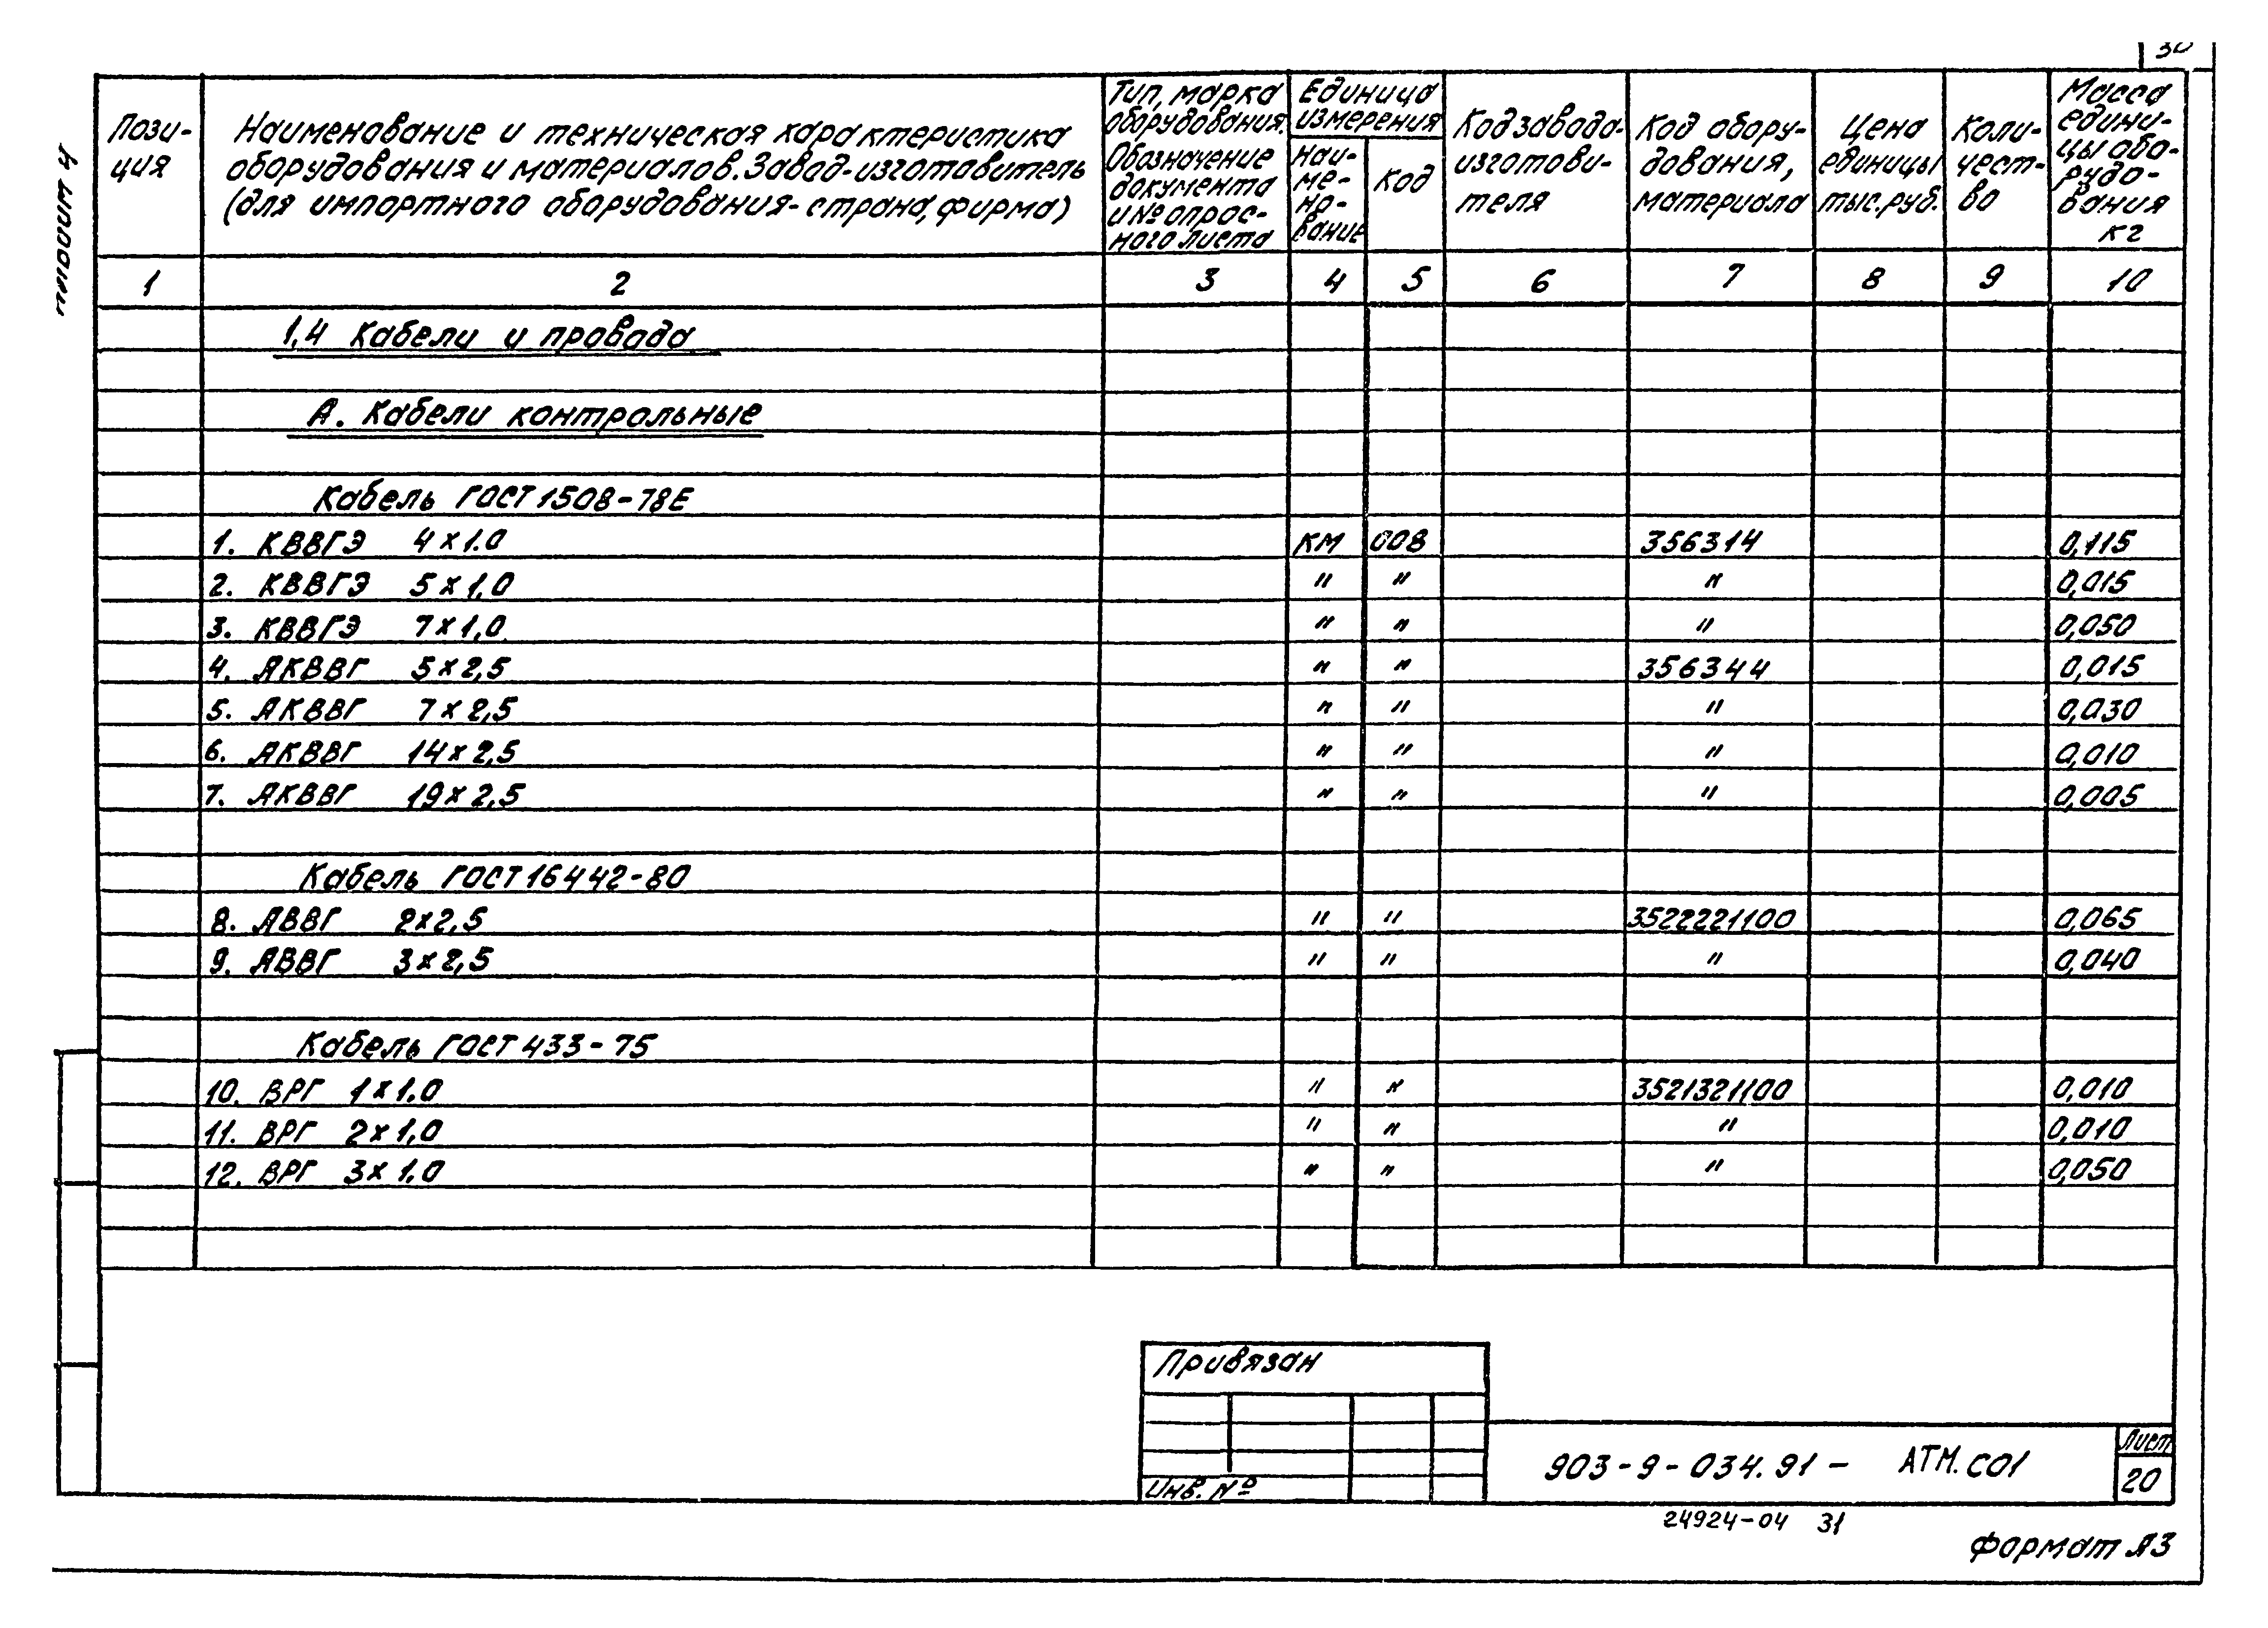 30
Альбом 4
Пози-
ция
Наименование и техническая характеристика
оборудования и материалов. Завод-изготовитель
(для импортного оборудования-страна, фирма)
Тип, марка
оборудования.
Обозначение
документа
и № опрос-
ного листа
Единица
измерения
Наи-
ме-
но-
вание
Код
Код завода-
изготови-
теля
Код обору-
дования,
материала
Цена
единицы
тыс.руб.
Коли-
чест-
во
Масса
едини-
цы обо-
рудо-
вания
кг
1 2 3 4 5 6 7 8 9 10
1,4 Кабели и провода
А. Кабели контрольные
Кабель ГОСТ 1508-78Е
1. КВВГЭ 4×1.0 КМ 008 356314 0,115
2. КВВГЭ 5×1,0 " " " 0,015
3. КВВГЭ 7×1,0 " " " 0,050
4. АКВВГ 5×2,5 " " 356344 0,015
5. АКВВГ 7×2,5 " " " 0,030
6. АКВВГ 14×2,5 " " " 0,010
7. АКВВГ 19×2,5 " " " 0,005
Кабель ГОСТ 16442-80
8. АВВГ 2×2,5 " " 3522221100 0,065
9. АВВГ 3×2,5 " " " 0,040
Кабель ГОСТ 433-75
10. ВРГ 1×1.0 " " 3521321100 0,010
11. ВРГ 2×1,0 " " " 0,010
12. ВРГ 3×1.0 " " " 0,050
Привязан
Инв. №
903-9-034.91- АТМ.СО1
Лист
20
24924-04 31
Формат А3